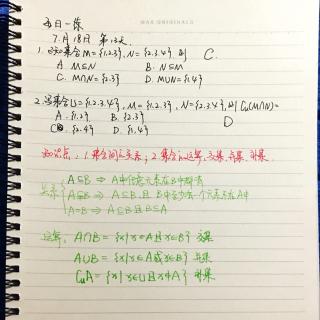 MAX ORIGINALS
每日一练
7月18日 第13天
1. 已知集合M={1,2,3}, N={2,3,4}, 则 C.
A. M⊆N B. N⊆M
C. M∩N={2,3} D. M∪N={1,4}
2. 设集合U={1,2,3,4}, M={1,2,3}, N={2,3,4}, 则 C∪(M∩N)=
A. {1,2} B. {2,3} D
C. {2,4} D. {1,4}
知识点: 1. 集合间的关系; 2. 集合的运算, 交集, 并集, 补集.
A⊆B ⇒ A中任意元素在B中都有
关系 A⊊B ⇒ A⊆B 且 B中至少有一个元素不在A中
A=B ⇒ A⊆B 且 B⊆A
运算: A∩B = {x|x∈A且x∈B} 交集
A∪B = {x|x∈A或x∈B} 并集
C∪A = {x|x∈U且x∉A} 补集